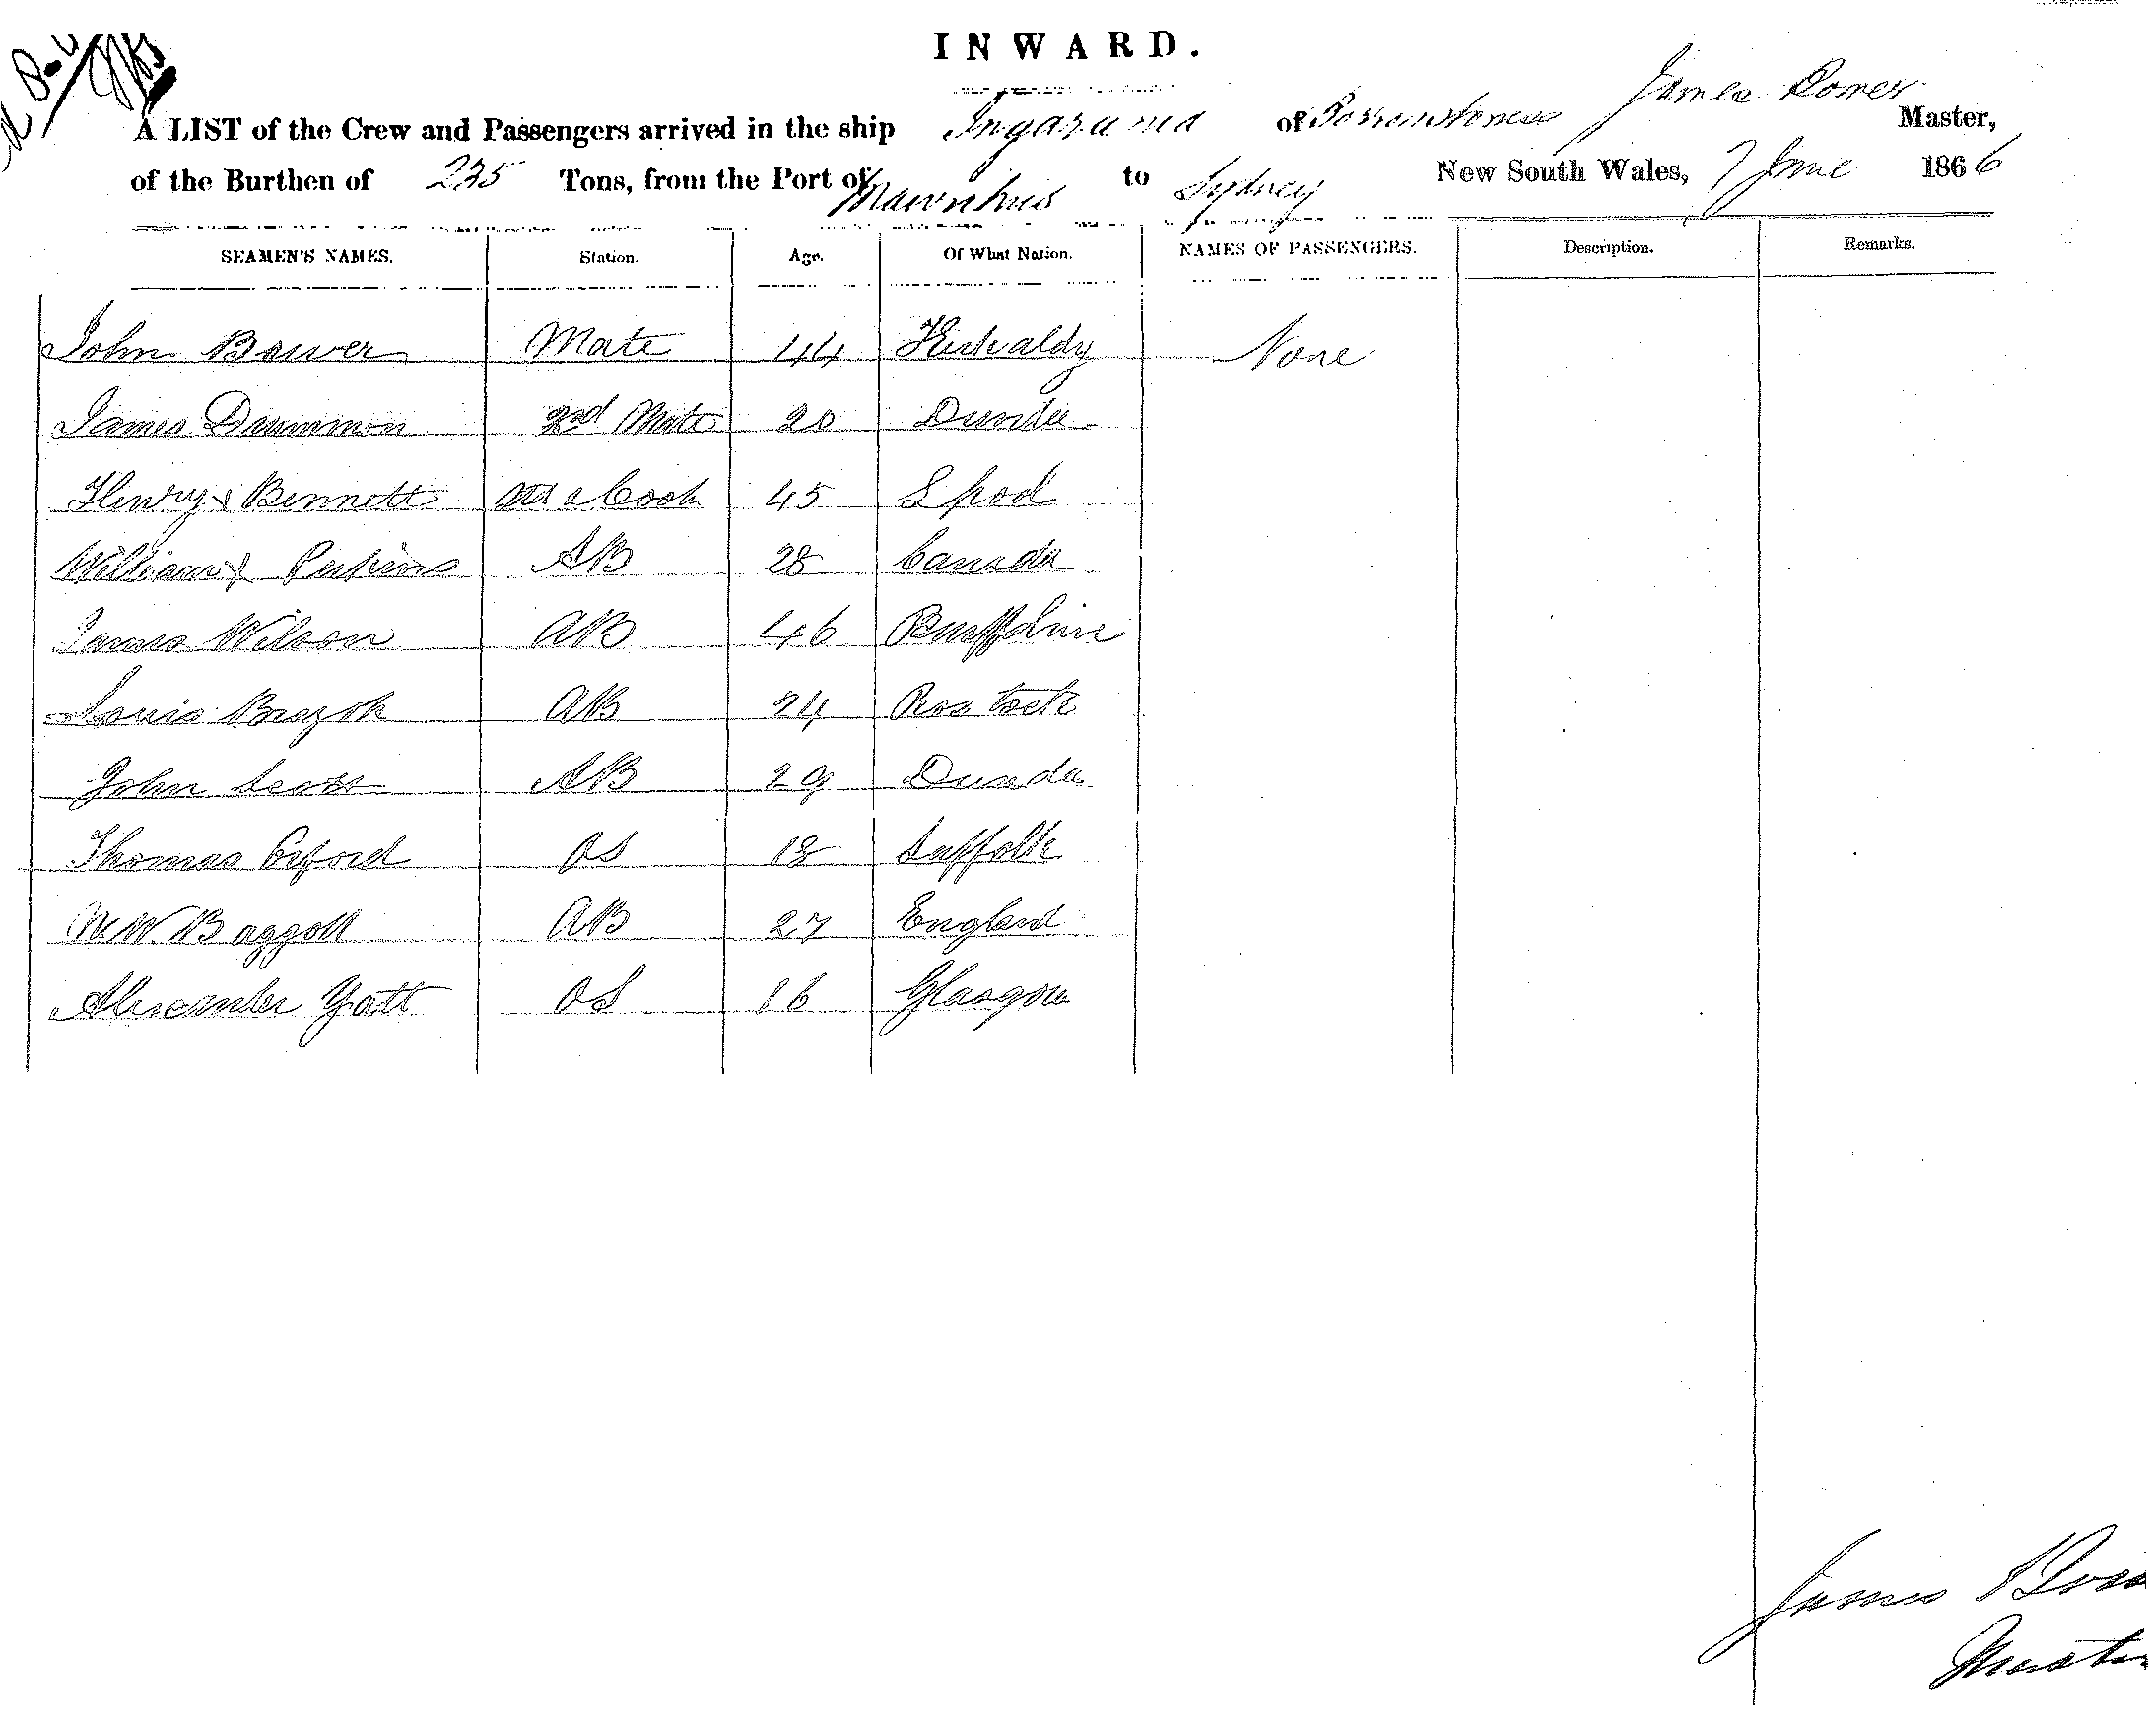 INWARD.
A LIST of the Crew and Passengers arrived in the ship of James Master,
of the Burthen of 235 Tons, from the Port of Mauritius to Sydney New South Wales, 7 June 1866
SEAMEN'S NAMES. Station. Age. Of What Nation. NAMES OF PASSENGERS. Description. Remarks.
John Bower Mate 44 None
James Drummon 2nd Mate 20 Dundee
Henry Bennett Cook 45 Lpool
William Perkins AB 28 Canada
James Wilson AB 46
Louis AB 24 Rostock
John AB 29 Dundee
Thomas Orford OS 18 Suffolk
W Baggott AB 27 England
Alexander Yatt OS 16 Glasgow
James